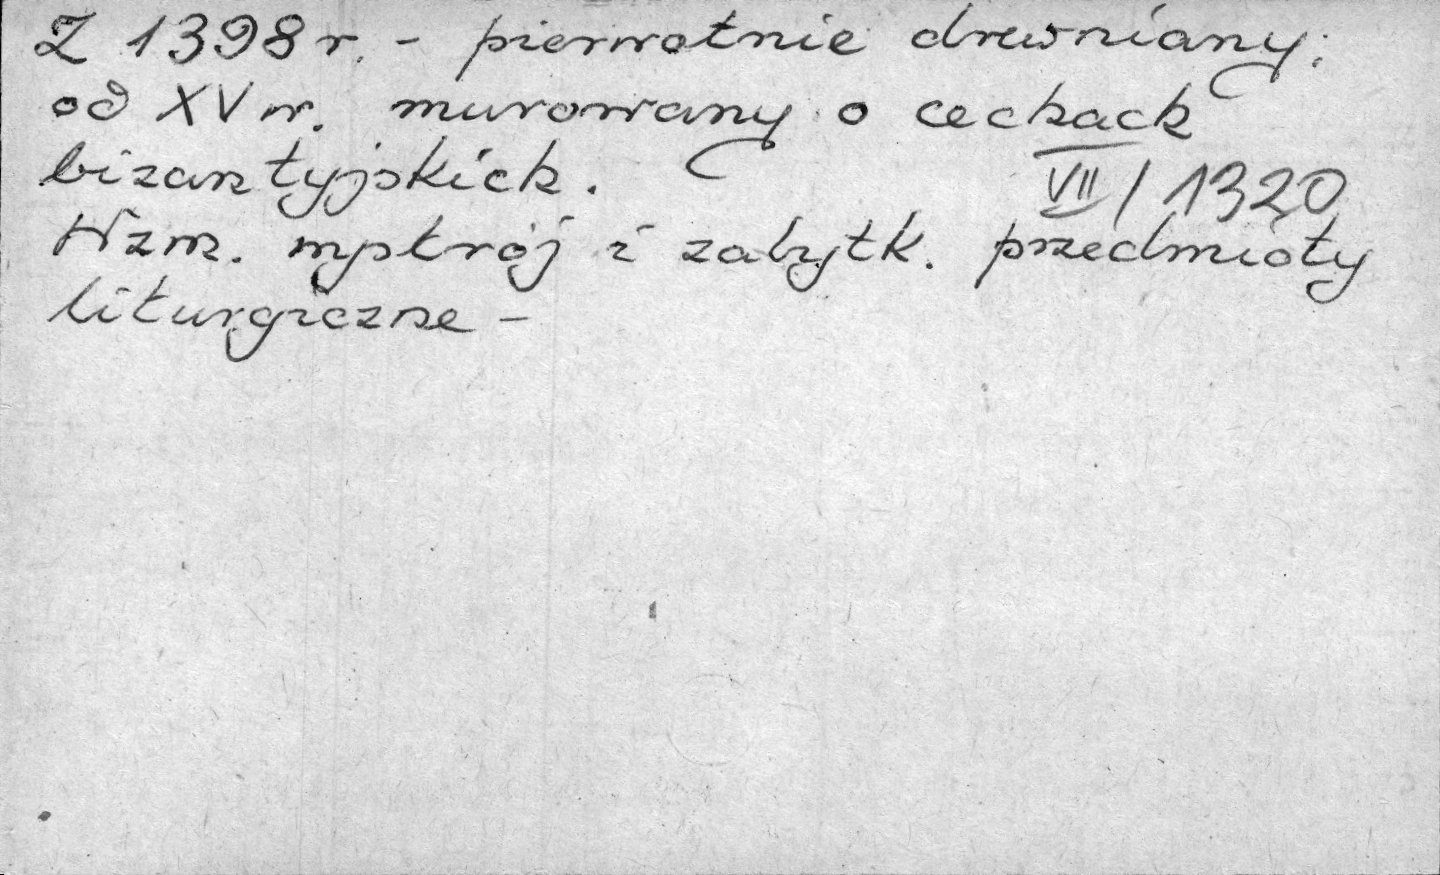 Z 1398 r. - pierwotnie drewniany;
od XV w. murowany o cechach
bizantyjskich.
VII / 1320
Wzm. wystrój i zabytk. przedmioty
liturgiczne -